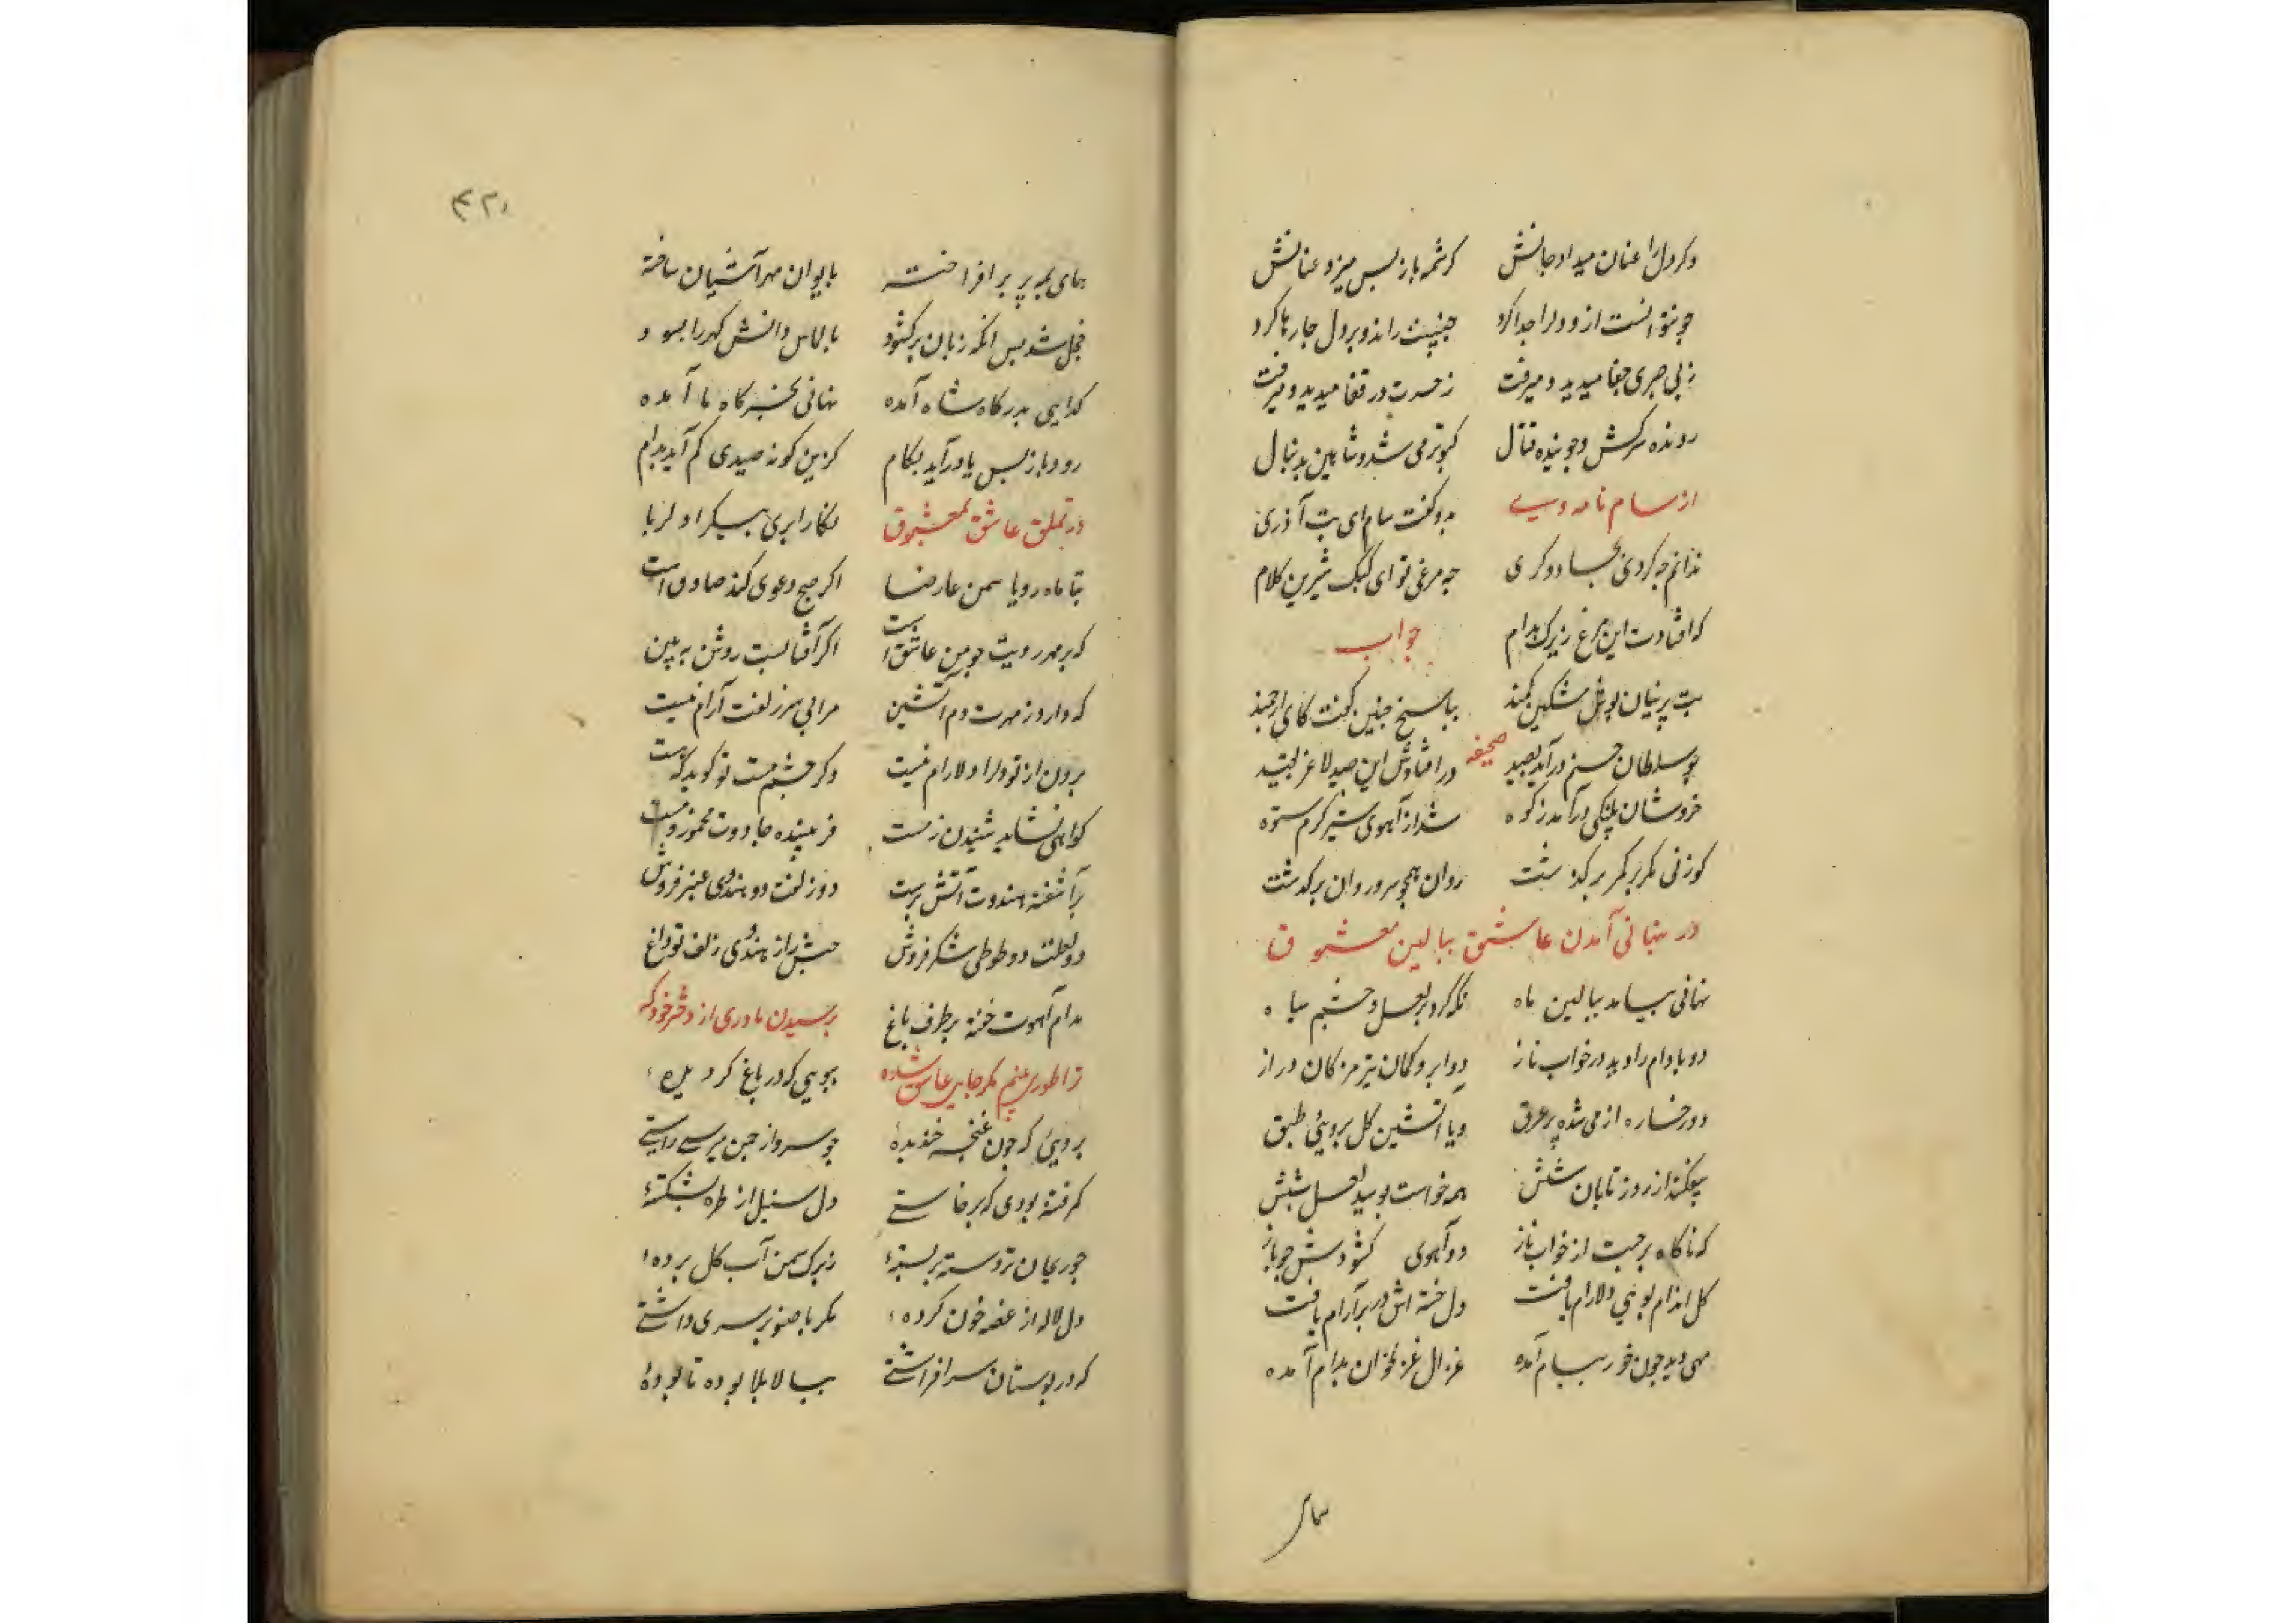 وکر دل را عنان میداد جانش کرشمه باز پس میزد عنانش
چو نتوانست ازو دل را جدا کرد جنیبت راند و بر دل جان رها کرد
ز بی صبری جفا میدید و میرفت ز حسرت در قفا میدید و میرفت
رونده سرکش و جوینده قتال کبوتر می شد و شاهین بدنبال
از سام نامه وسیے بدو گفت سام ای بت آذری
ندانم چه کردی بجادوکری چه مرغی تو ای کبک شیرین کلام
که افتادت این مرغ زیرک بدام جواب
بت پرنیان پوش مشکین کمند بپاسخ چنین گفت کای ارجمند
چو سلطان حسنم درآید بصید صحیفه در افتادش این صید لاغر بقید
خروشان پلنکی درآمد ز کوه شد از آهوی شیر کرم ستوه
کوزنی مکر بر کمر برکذشت روان همچو سرو روان برکذشت
در پنهانی آمدن عاشق ببالین معشوق
نهانی بیامد ببالین ماه نکه کرد بر لعل و چشم سیاه
دو بادام را دید در خواب ناز دو ابرو کمان تیر مژکان دراز
دو رخساره از می شده پر عرق و یا آتشین کل برویی طبق
بیفکند از روز تابان شبش همه خواست بوسید لعل لبش
که ناکاه برجست از خواب ناز دو آهوی کشودش چو باز
کل اندام بویی دلارام یافت دل خسته اش در بر آرام یافت
مهی دید چون خور ببام آمده غزال غزلخوان بدام آمده
همای
۴۲۰
همای بمه پر برافراخته بایوان مهر آشیان ساخته
خجل شد پس انکه زبان برکشود بالماس دانش کهر را بسود
کدایی بدرکاه شاه آمده نهانی بخرکاه ما آمده
رود باز پس یا درآید بکام کزین کونه صیدی کم آید بدام
در تملق عاشق بمعشوق نکارا پری پیکرا دلربا
بتا ماه رویا سمن عارضا اکر صبح دعوی کند صادق است
که بر مهر رویت چو من عاشق است اکر آفتابست روشن به بین
که دارد ز مهرت دم آتشین مرا بی سر زلفت آرام نیست
برون از تو دل را دلارام نیست وکر چشم مست تو کوید که هست
کواهی نشاید شنیدن ز مست فریبنده جادوت مخمور و مست
برآشفته هندوت آتش پرست دو زلفت دو هندوی عنبر فروش
دو لعلت دو طوطی شکر فروش حبش را ز هندوی زلف تو داغ
مدام آهوت خفته بر طرف باغ پرسیدن مادری از دختر خود که
ترا طوری می بینم مکر جایی عاشق شده ببویی که در باغ کرد
برویی که چون غنچه خندیدهٔ چو سرو از چمن میرسے راستے
کرفته بودی که برخاستے دل سنبل از طره بشکستهٔ
چو ریحان تر دسته بربستهٔ ز برک سمن آب کل بردهٔ
دل لاله از غصه خون کردهٔ مکر با صنوبر سری داشتے
که در بوستان سر افراشتے ببالا بلا بوده تا بودهٔ